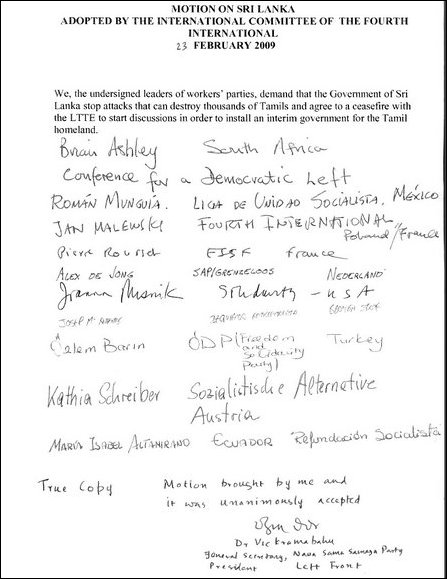 MOTION ON SRI LANKA
ADOPTED BY THE INTERNATIONAL COMMITTEE OF THE FOURTH
INTERNATIONAL
23 FEBRUARY 2009
We, the undersigned leaders of workers' parties, demand that the Government of Sri
Lanka stop attacks that can destroy thousands of Tamils and agree to a ceasefire with
the LTTE to start discussions in order to install an interim government for the Tamil
homeland.
Brian Ashley South Africa
Conference for a Democratic Left
ROMÁN MUNGUÍA. LIGA DE UNIDAD SOCIALISTA. MÉXICO
JAN MALEWSKI FOURTH INTERNATIONAL
Poland/France
Pierre Rousset France
ALEX DE JONG SAP/GRENZELOOS NEDERLAND
Solidarity - USA
Barın ÖDP (Freedom Turkey
and
Solidarity
Party)
Kathia Schreiber Sozialistische Alternative
Austria
MARÍA ISABEL ALTAMIRANO ECUADOR Refundación Socialista
True Copy Motion brought by me and
it was unanimously accepted
Dr Vickramabahu
General Secretary, Nava Sama Samaja Party
President Left Front